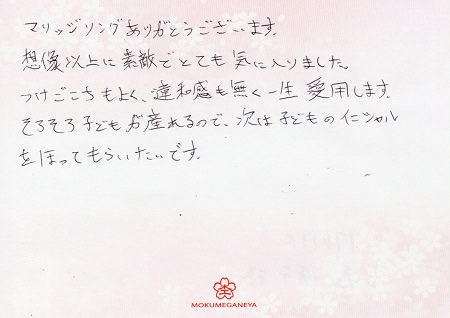 マリッジリングありがとうございます。
想像以上に素敵でとても気に入りました。
つけごこちもよく、違和感も無く一生愛用します。
そろそろ子どもが産まれるので、次は子どものイニシャル
をほってもらいたいです。
MOKUMEGANEYA